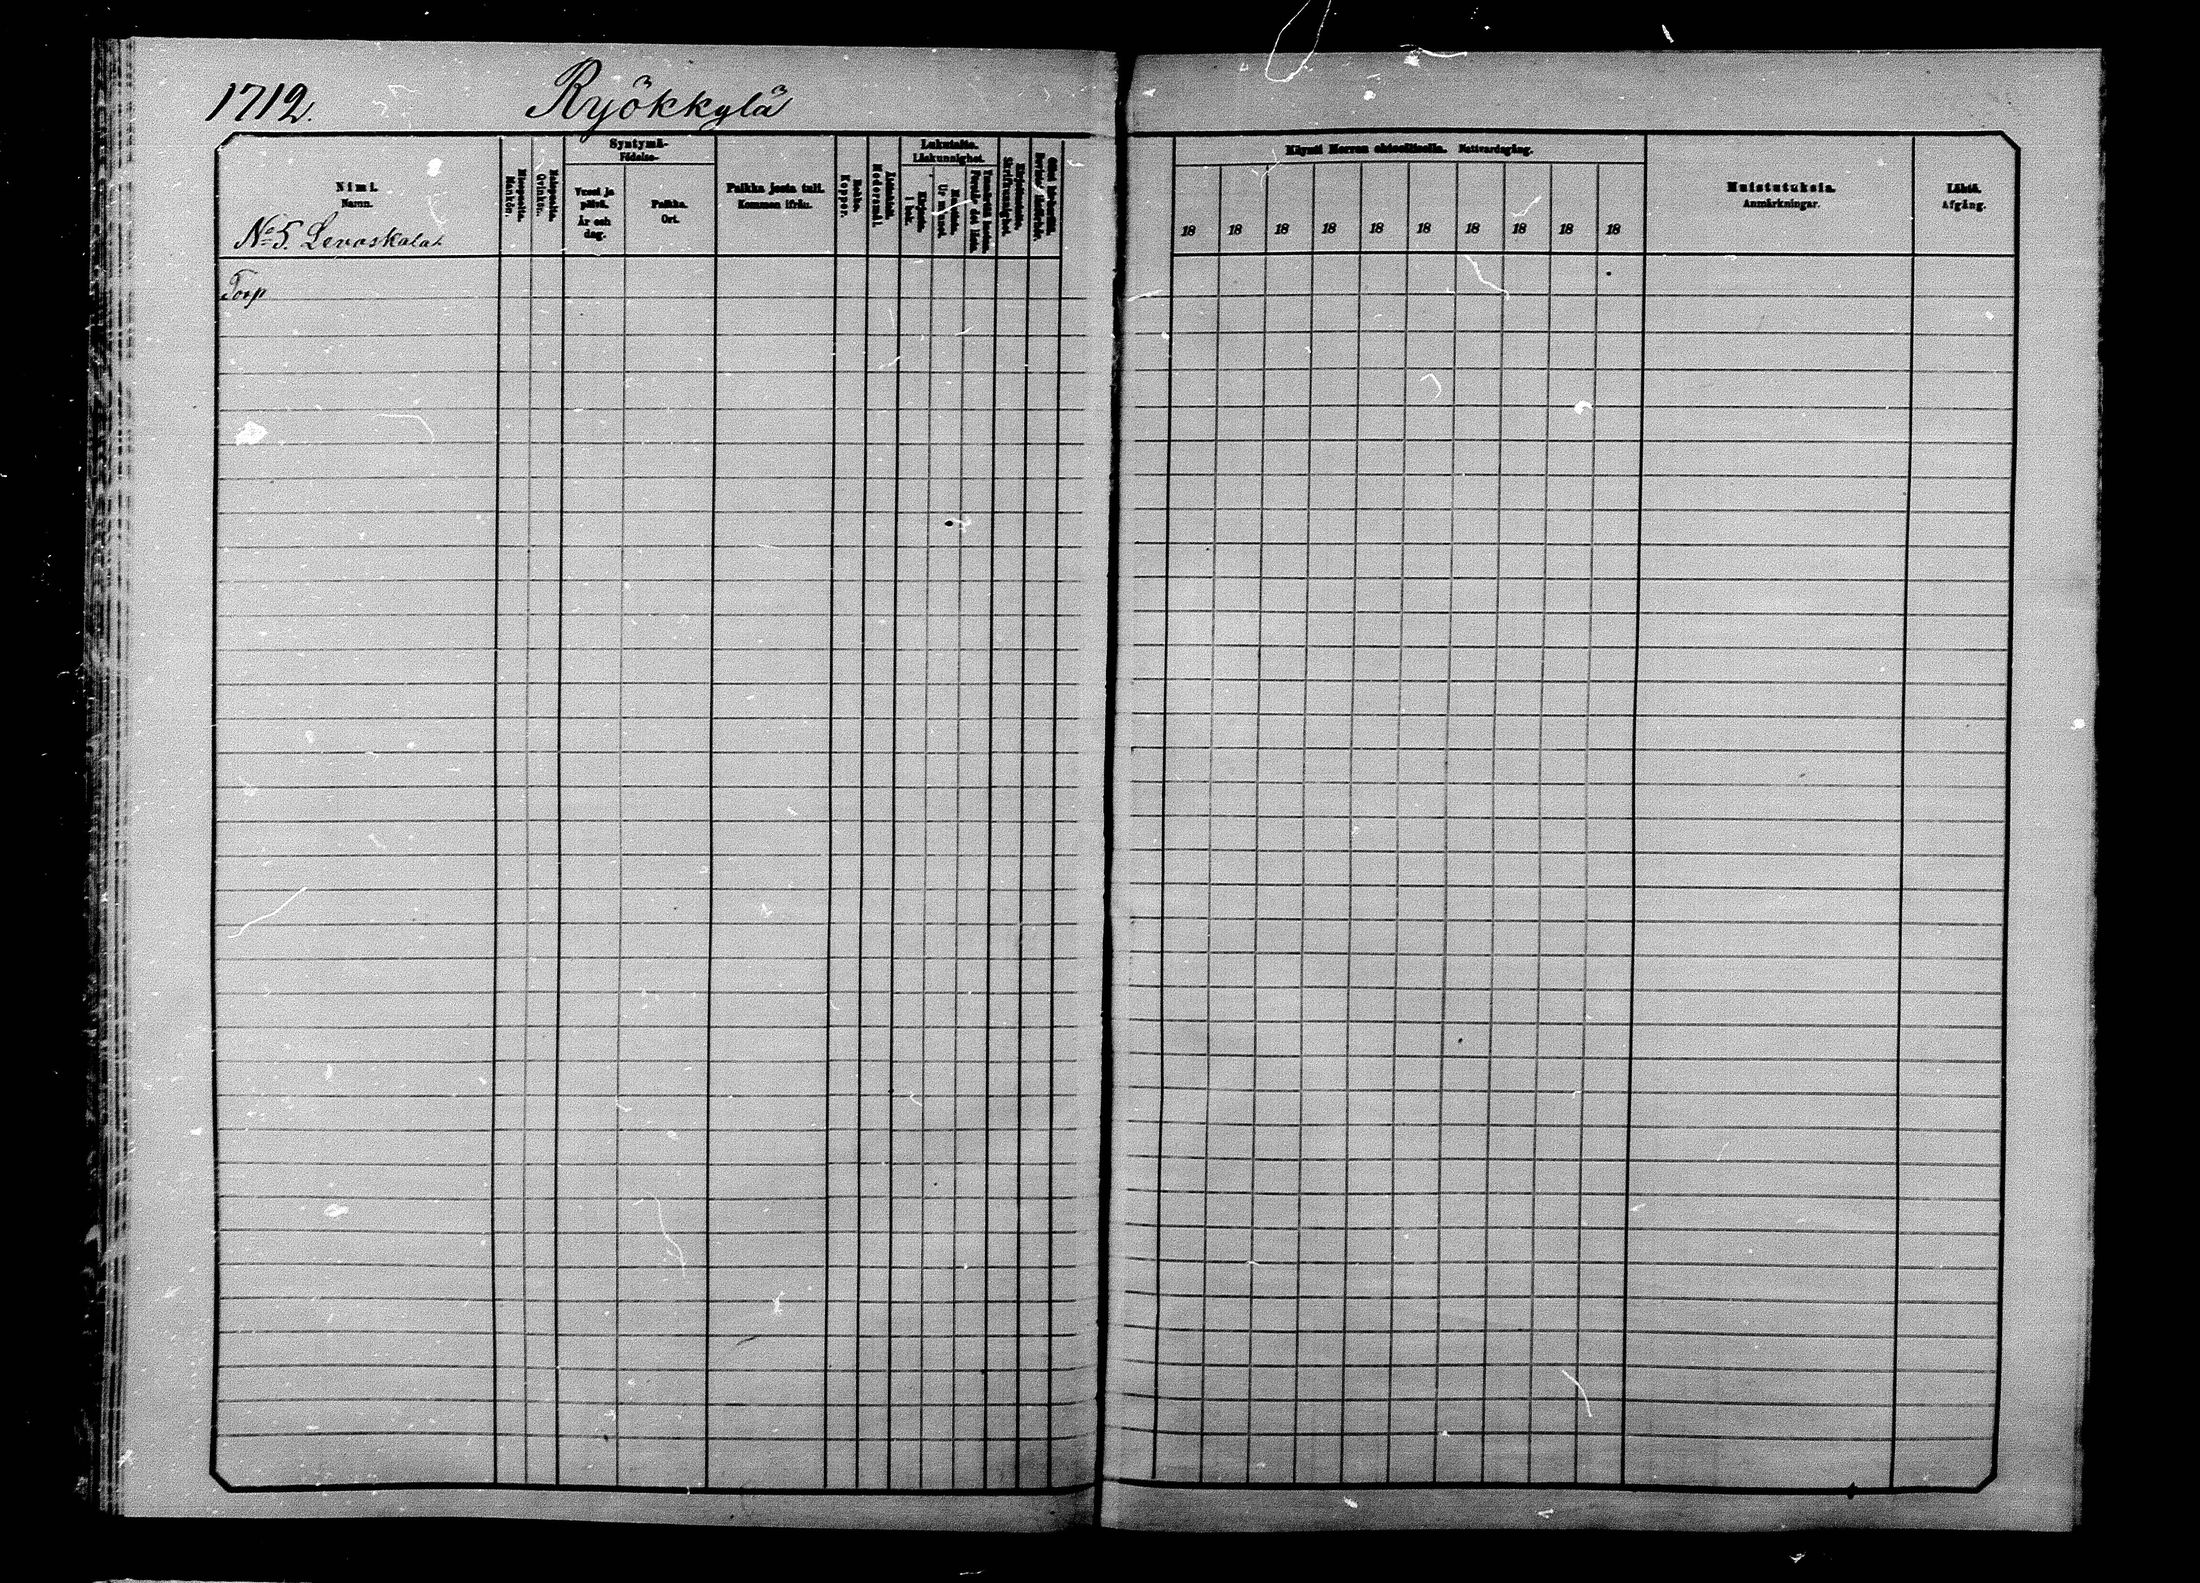 1712.
Ryökkylä
Nimi.
Namn.
No 5. Levoskala.
Miespuolia.
Mankön.
Naispuolia.
Qvinkön.
Syntymä-
Födelse-
Vuosi ja päivä.
År och dag.
Paikka.
Ort.
Paikka josta tuli.
Kommen ifrån.
Rokko.
Koppor.
Lukutaito.
Läskunnighet.
Kirjasta.
I bok.
Ur minnet.
Kirjoitustaito.
Skrifkunnighet.
Käynti Herran ehtoollisella. Nattvardsgång.
18 18 18 18 18 18 18 18 18 18
Muistutuksia.
Anmärkningar.
Lähtö.
Afgång.
Torp